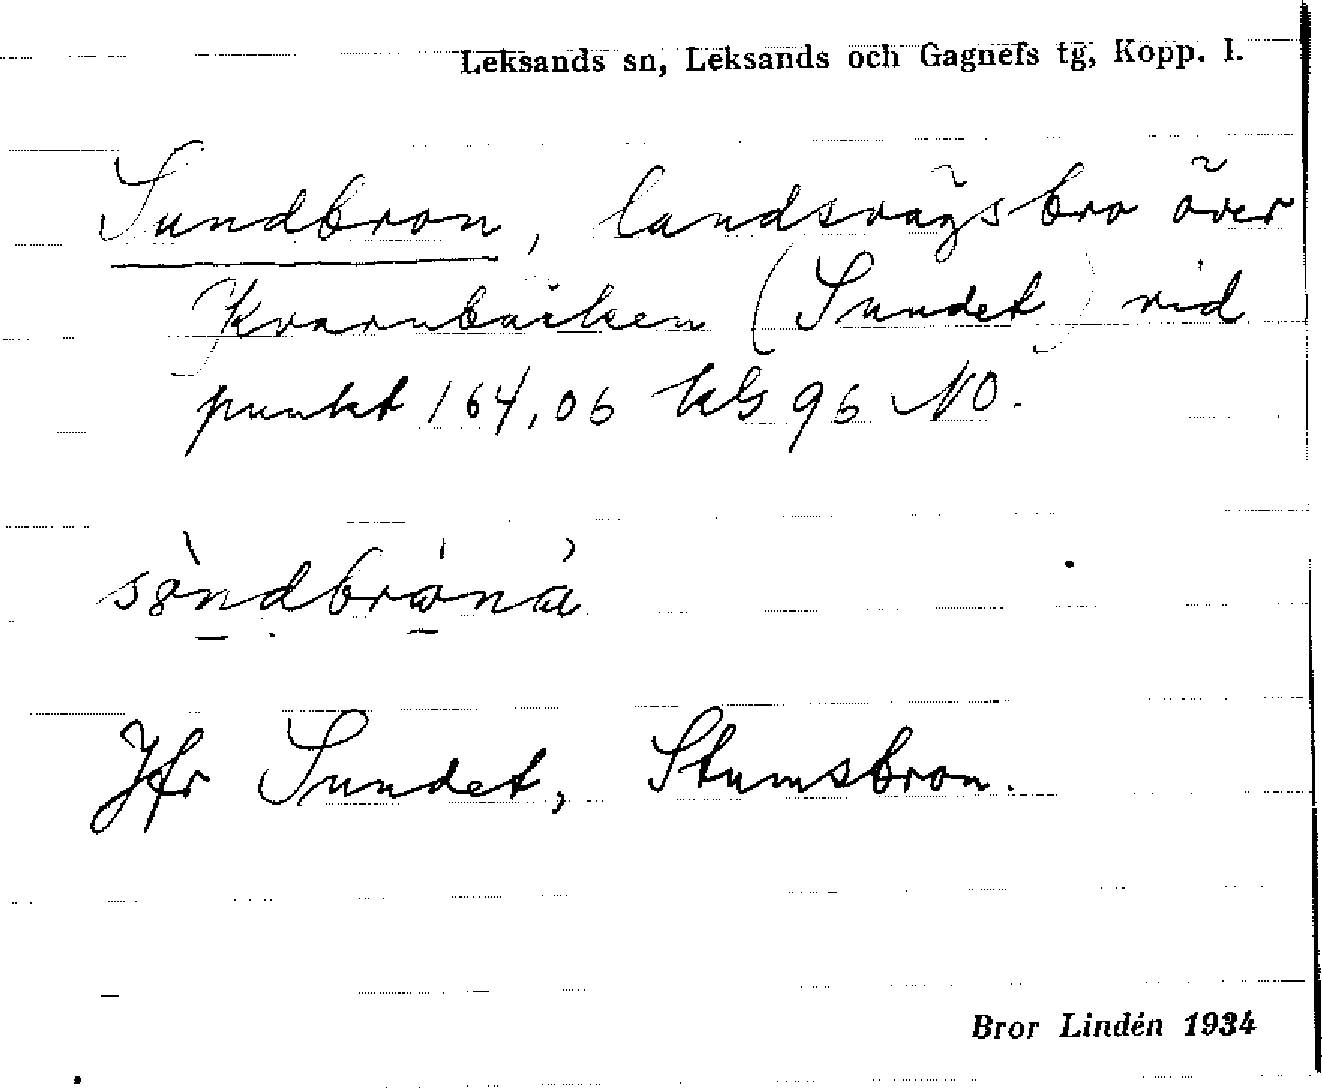 Leksands sn, Leksands och Gagnefs tg, Kopp. l.
Sundbron, landsvägsbro över
Kvarnbäcken (Sundet) vid
punkt 164,06 kbl 96 NO.
Jfr Sundet, Stumsbron.
Bror Lindén 1934